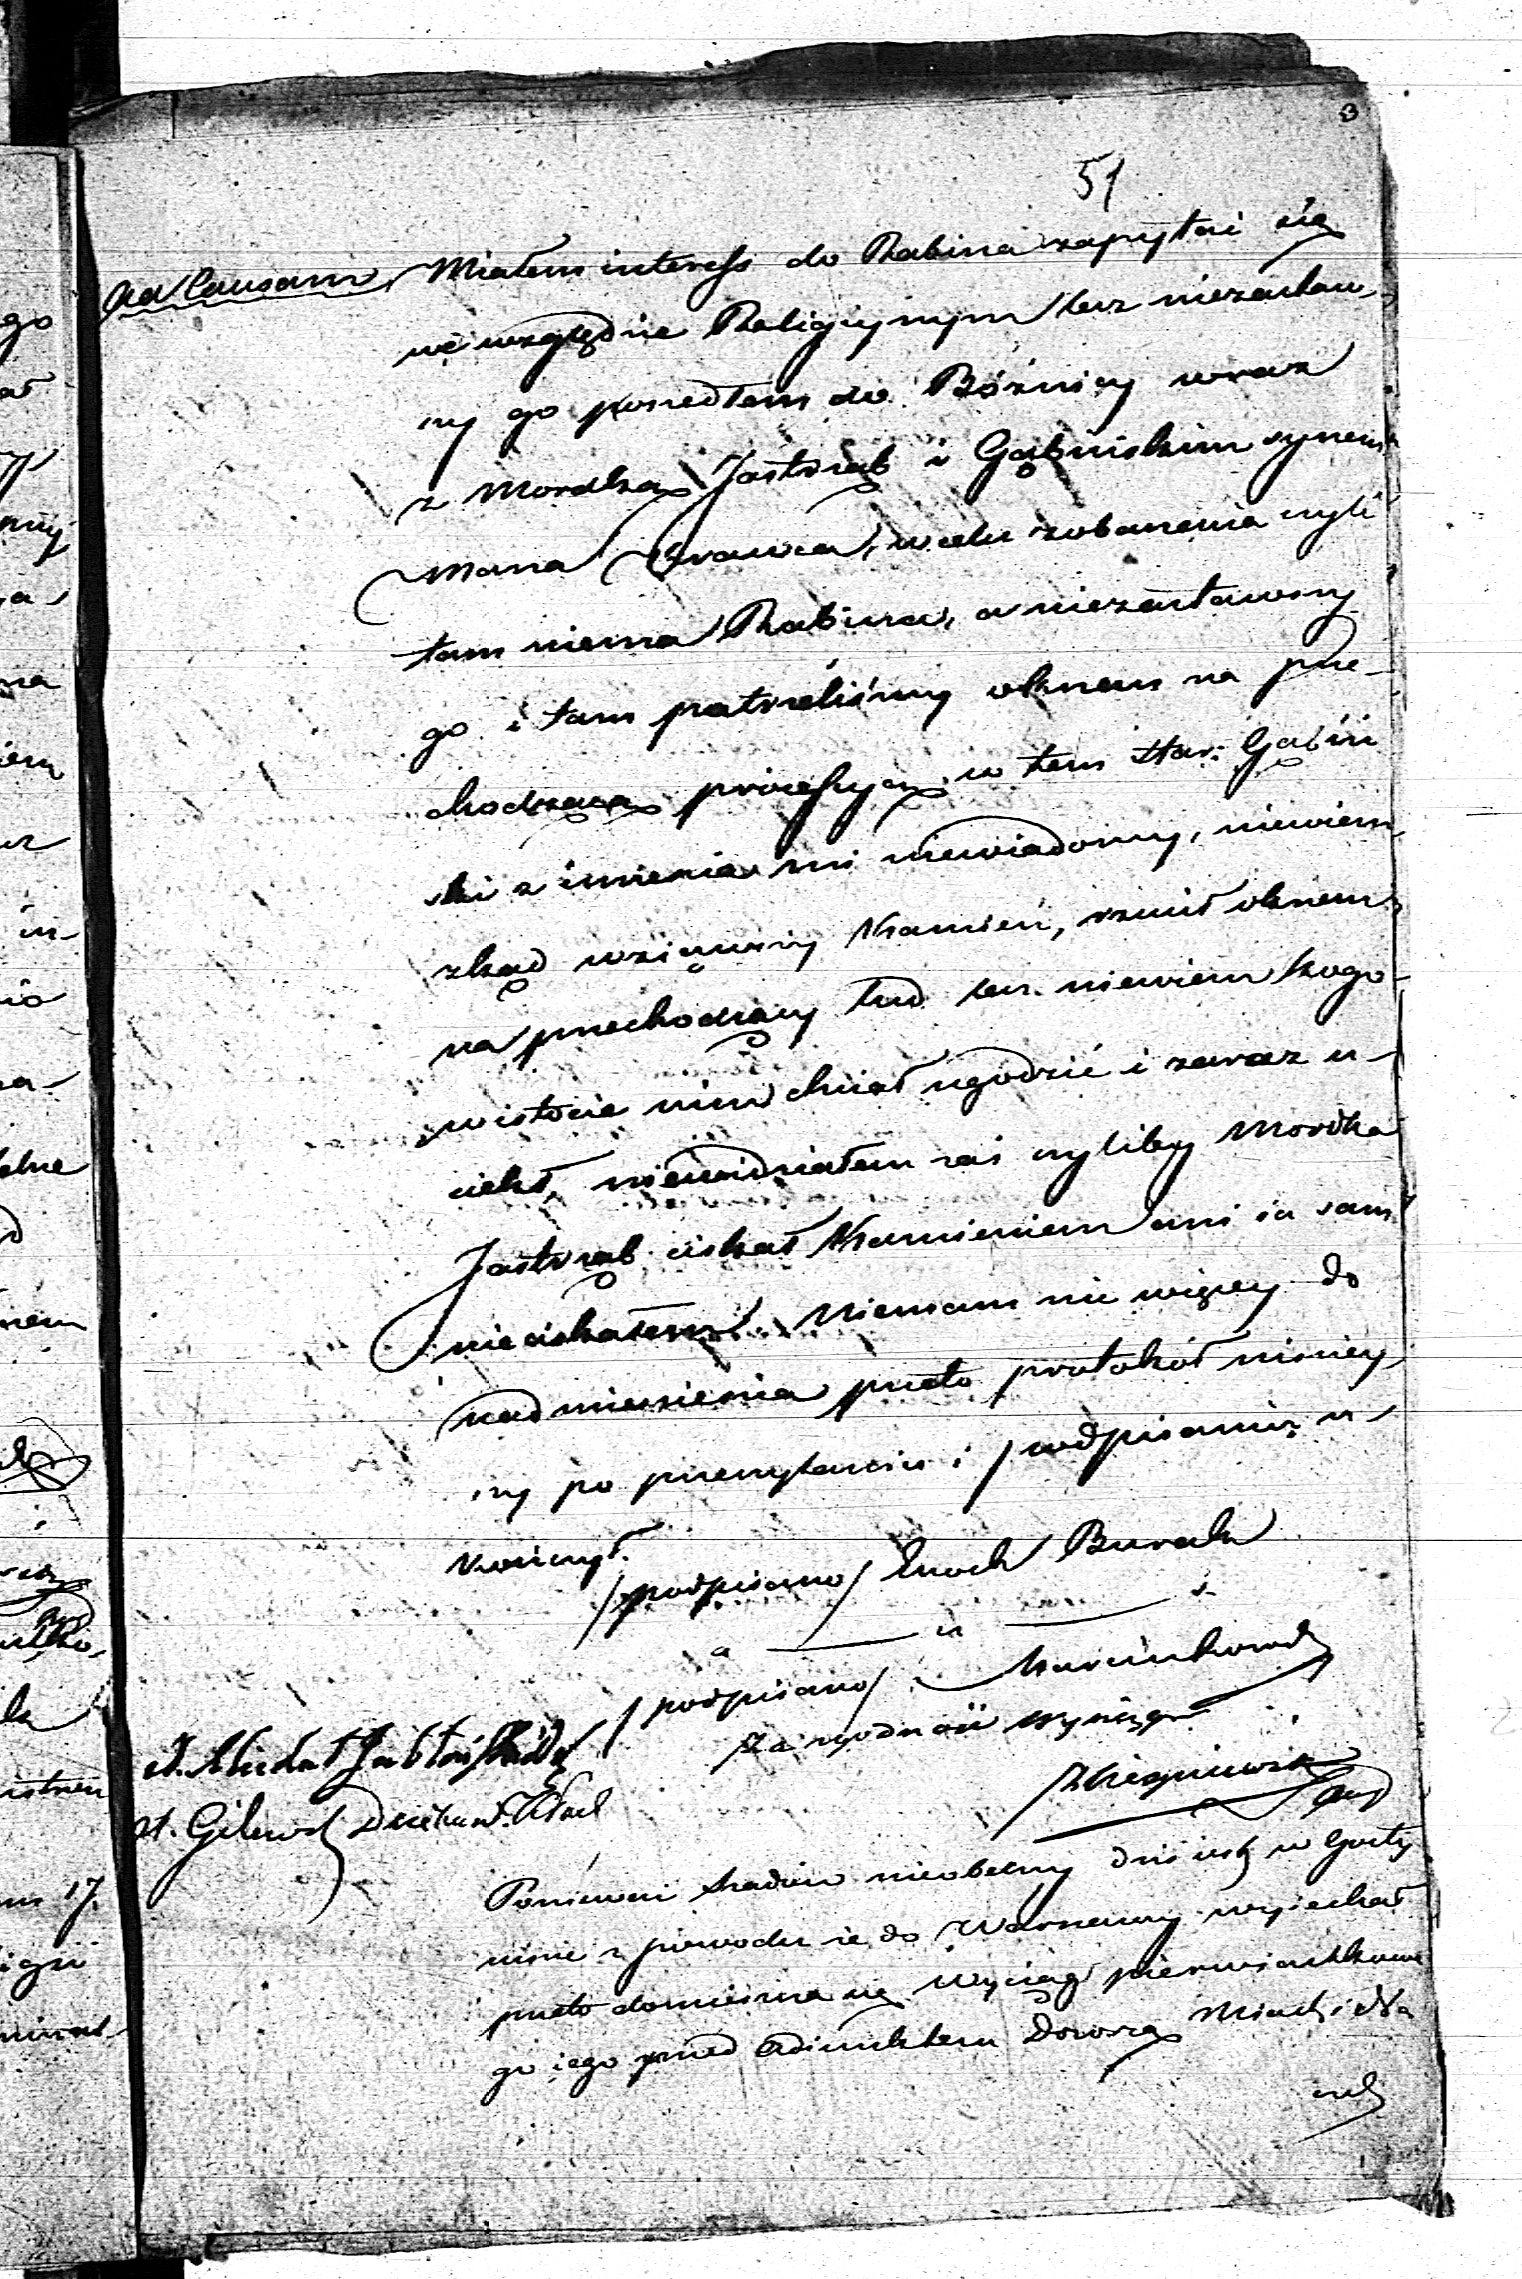 51
ad Causam Miałem interess do Rabina zapytać się
we względzie Religijnym lecz niezastaw-
szy go poszedłem do Bóżnicy wraz
z Mordką Jastrząb i Gąbińskim synem
Mana Krawca, w celu zobaczenia czyli
tam niema Rabina, a niezastawszy
go i tam patrzeliśmy oknem na prze-
chodzącą processyą w tem Star: Gąbiń
ski z imienia mi niewiadomy, niewiem
zkąd wziąwszy Kamień, rzucił oknem
na przechodzący lud lecz niewiem kogo
w istocie nim chciał ugodzić i zaraz u-
ciekł, niewidziałem zaś czyliby Mordka
Jastrząb ciskał Kamieniem ani ia sam
nieciskałem. Niemam nic więcey do
nadmienienia przeto protokół niniey
szy po przeczytaniu i podpisaniu u-
kończył.
/podpisano/ Enoch Burak
a u s
/podpisano/ Marcinkowski
Za zgodność wyciągu
Zbiegniewski
Ponieważ nieobecny dziś iest w Gosty
ninie z powodu że do Warszawy wyiechał
przeto domieszcza się Wyciąg pierwiastkowe
go iego przed Adjunktem Dozorcą Miast i